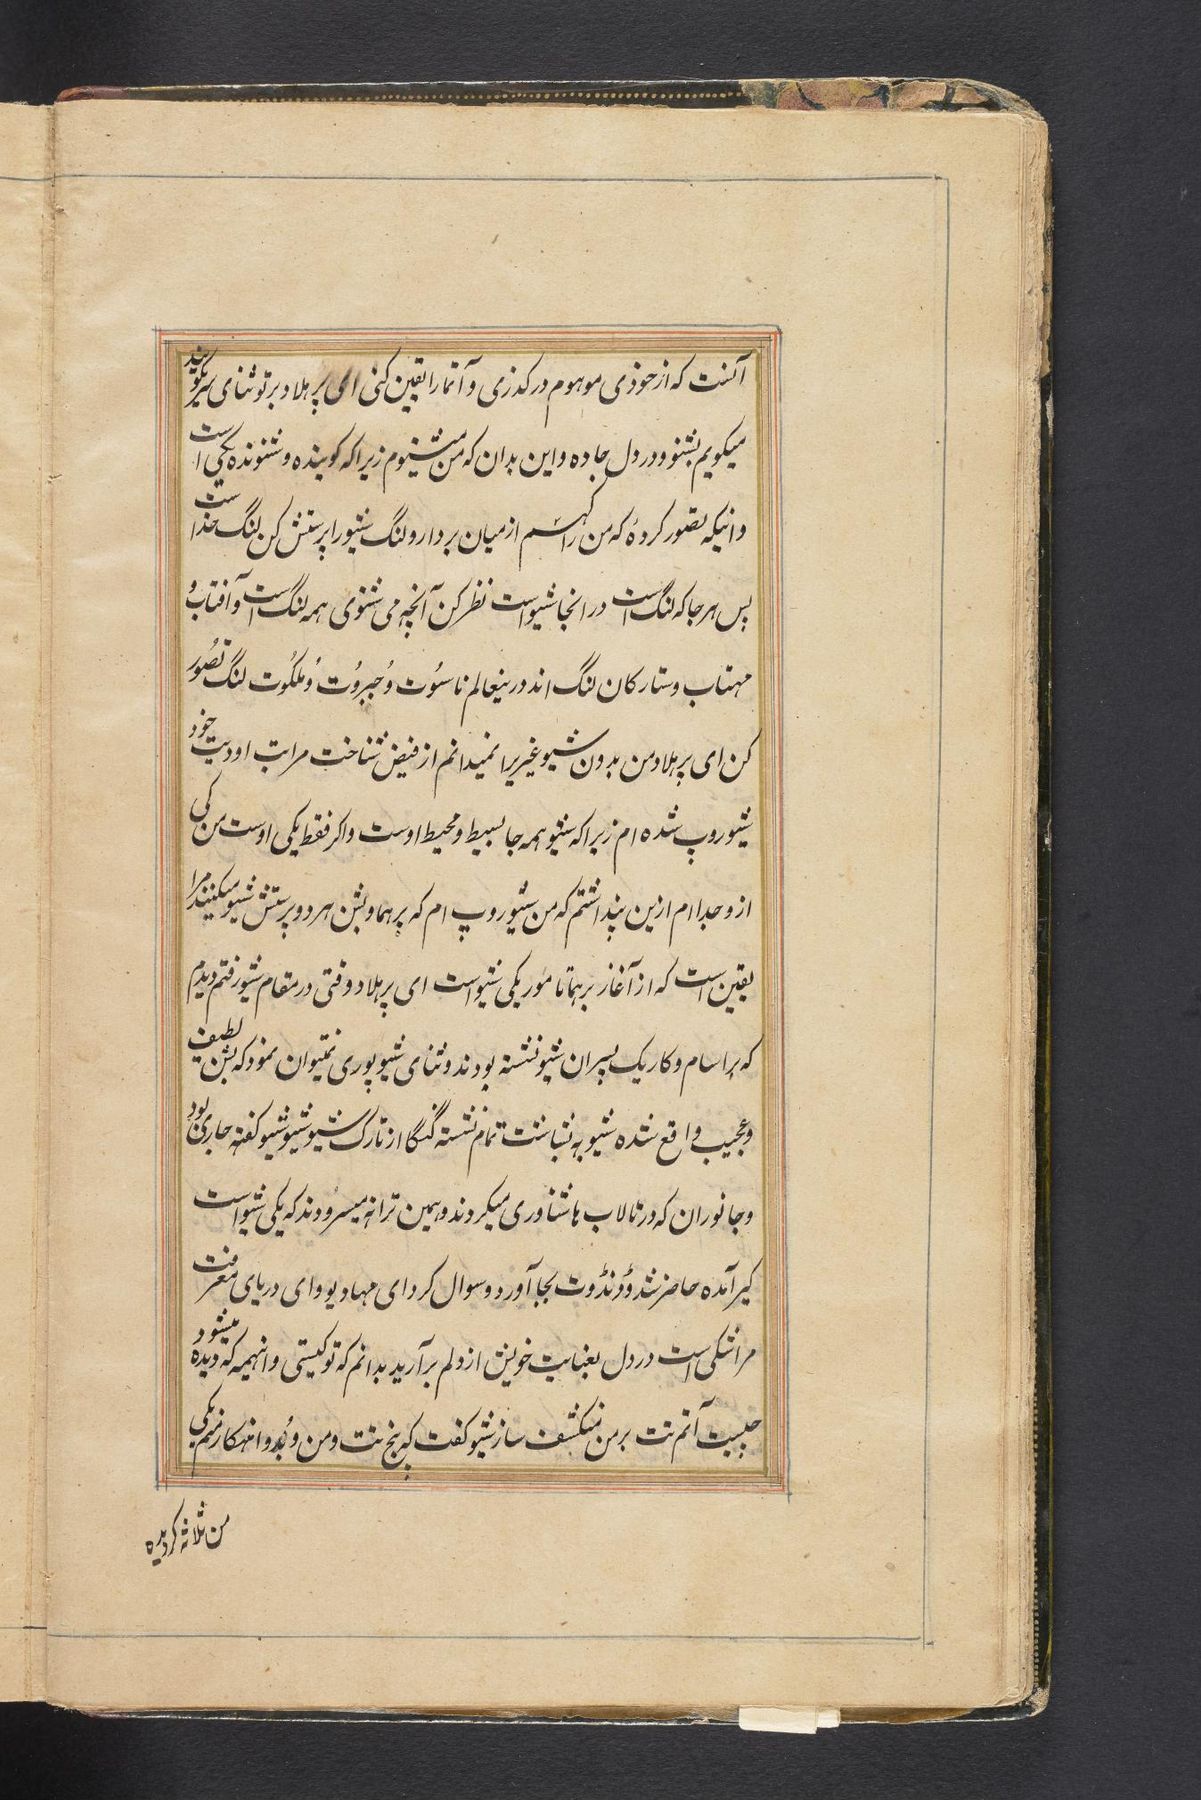 آنست که از خودی موهوم در کذری و آتما را یقین کنی ای پرهلاد بر تو ثنای سریکویند
میکویم بشنو و در دل جا ده و این بدان که من میشنوم زیرا که کوینده و شنونده یکی است
و اینکه تصور کردهٔ که من راکهسم از میان بردار و لنگ شیو را پرستش کن لنگ خداست
پس هر جا که لنگ است در انجا شیو است نظر کن آنچه می شنوی همه لنگ است و آفتاب و
مهتاب و ستارکان لنگ اند درینعالم ناسُوت وُ جبرُوت وُ ملکُوت لنگ تصُور
کن ای پرهلاد من بدون شیو غیریرا نمیدانم از فیض شناخت مراتب اودیت خود
شیوروپ شده ام زیرا که شیو همه جا بسیط و محیط اوست و اکر فقط یکی اوست من کی
از و جدا ام ازین پنداشتم که من شیوروپ ام که برهما و بشن هر دو پرستش شیو میکنند مرا
یقین است که از آغاز برهما تا مور یکی شیو است ای پرهلاد وقتی در مقام شیو رفتم دیدم
که پراسام و کاریک پسران شیو نشسته بودند و ثنای شیوپوری نمیتوان نمود که بشن لطیف
و عجیب واقع شده شیو به نشاست تمام نشسته گنگا از تارک شیو شیو شیو کفته جاری بود
و جانوران که در تالاب ها شناوری میکردند و همین ترانه میسرودند که یکی شیو است
کیر آمده حاضر شد و ڈنڈوت بجا آورد و سوال کرد ای مهادیو و ای دریای معرفت
مرا شکی است در دل بعنایت خویش از دلم برآرید بدانم که تو کیستی و اینهمه که دیده میشود
چیست آتم تت بر من منکشف ساز شیو کفت که پنج تت و من و بُده و انهکار منم یکی
من ثلاثه کردیده